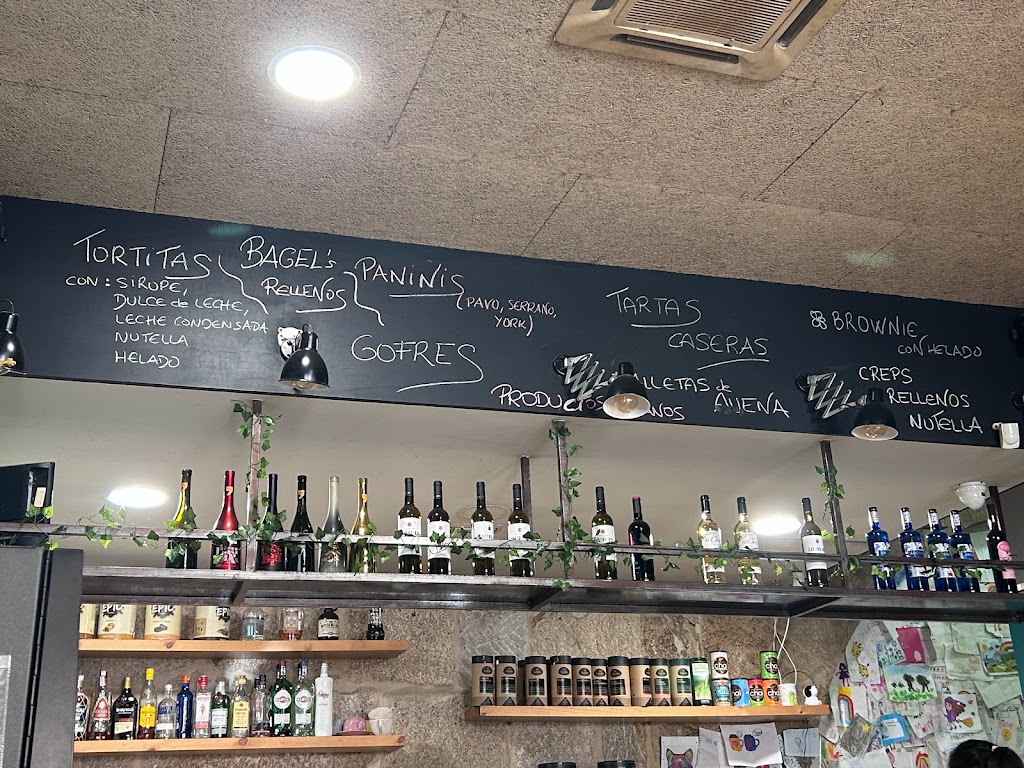 TORTITAS
CON: SIROPE,
DULCE de LECHE,
LECHE CONDENSADA
NUTELLA
HELADO
BAGEL's
RELLENOS
PANIÑIS
(PAVO, SERRANO,
YORK)
GOFRES
TARTAS
CASERAS
PRODUCTOS
LLETAS de
AVENA
BROWNIE
CON HELADO
CREPS
RELLENOS
NUTELLA
EPIC
EPIC
EPIC
chai